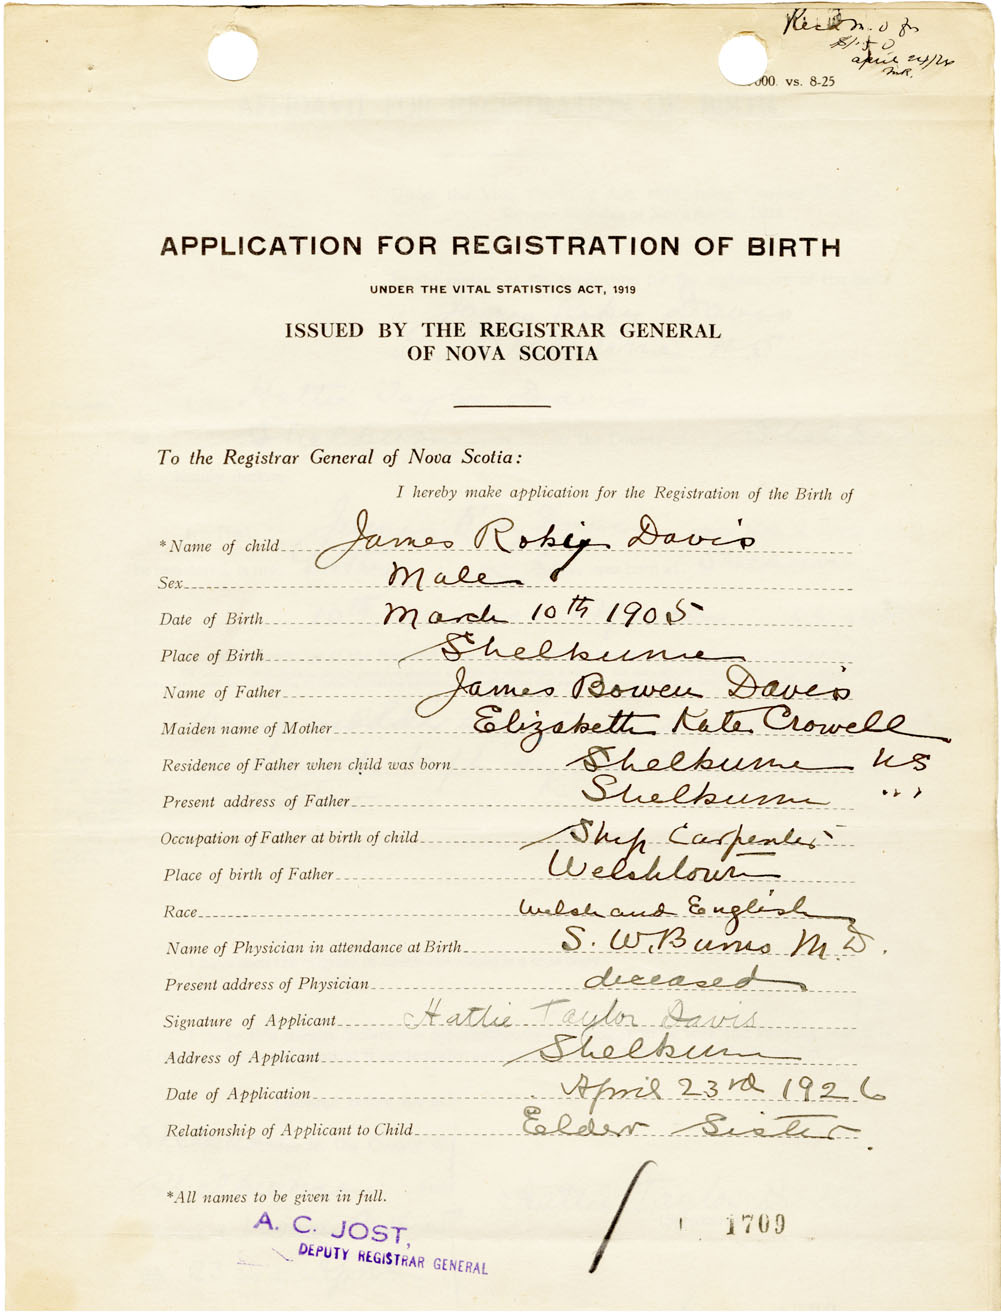 Recd M. O for
$1.50
april 24/26
MR.
000. vs. 8-25
APPLICATION FOR REGISTRATION OF BIRTH
UNDER THE VITAL STATISTICS ACT, 1919
ISSUED BY THE REGISTRAR GENERAL
OF NOVA SCOTIA
To the Registrar General of Nova Scotia:
I hereby make application for the Registration of the Birth of
*Name of child James Davis
Sex Male
Date of Birth March 10th 1905
Place of Birth Shelburne
Name of Father James Bowen Davis
Maiden name of Mother Elizabeth Kate Crowell
Residence of Father when child was born Shelburne NS
Present address of Father Shelburne " "
Occupation of Father at birth of child Ship Carpenter
Place of birth of Father Welshtown
Race Welsh and English
Name of Physician in attendance at Birth S. W. Burns M.D.
Present address of Physician deceased
Signature of Applicant Hattie Taylor Davis
Address of Applicant Shelburne
Date of Application April 23rd 1926
Relationship of Applicant to Child Elder Sister.
*All names to be given in full.
A. C. JOST,
DEPUTY REGISTRAR GENERAL
1709